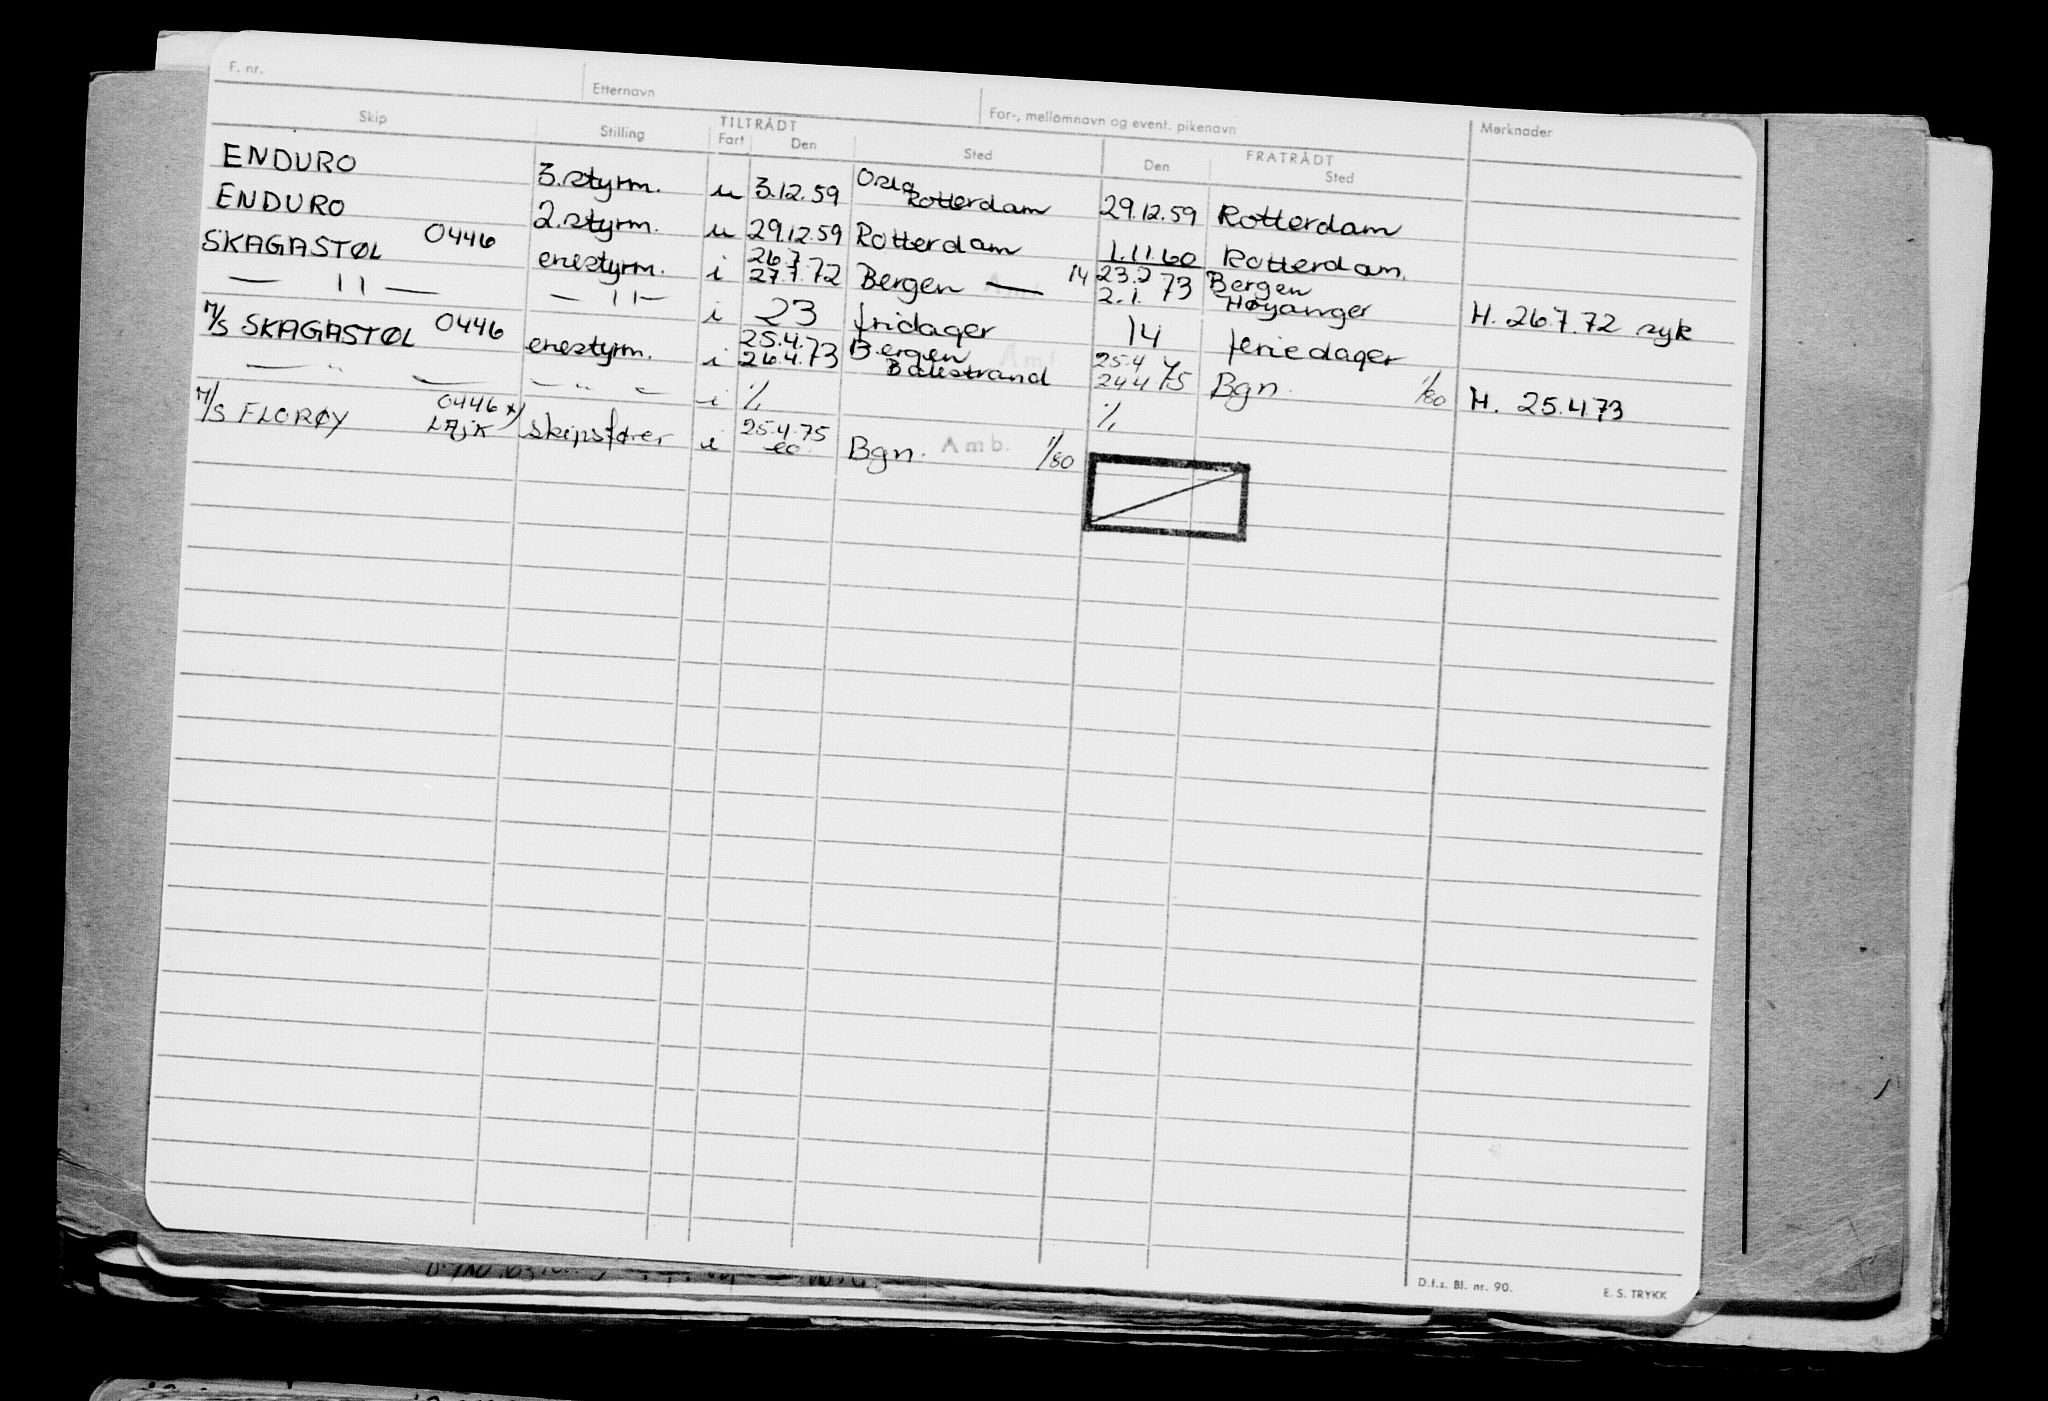 F. nr. Etternavn For-, mellomnavn og event. pikenavn Merknader
Skip Stilling TILTRÅDT Fart Den Sted FRATRÅDT Den Sted
ENDURO 3.styrm. u 3.12.59 Oslo Rotterdam 29.12.59 Rotterdam
ENDURO 2.styrm. u 29.12.59 Rotterdam 1.11.60 Rotterdam.
SKAGASTØL 0446 enestyrm. i 26.7. 27.7.72 Bergen — 14 23.2 2.1. 73 Bergen Høyanger H. 26.7.72 syk
— 11 — — 11 — i 23 fridager 14 feriedager
M/S SKAGASTØL 0446 enestyrm. i 25.4. 26.4.73 Bergen Balestrand 25.4 24.4 75 Bgn. 1/80 H. 25.4.73
— " — — " — i % %
M/S FLORØY 0446 x) LAJK skipsfører i 25.4.75 Bgn. Amb. 1/80
D.f.s. Bl. nr. 90. E. S. TRYKK